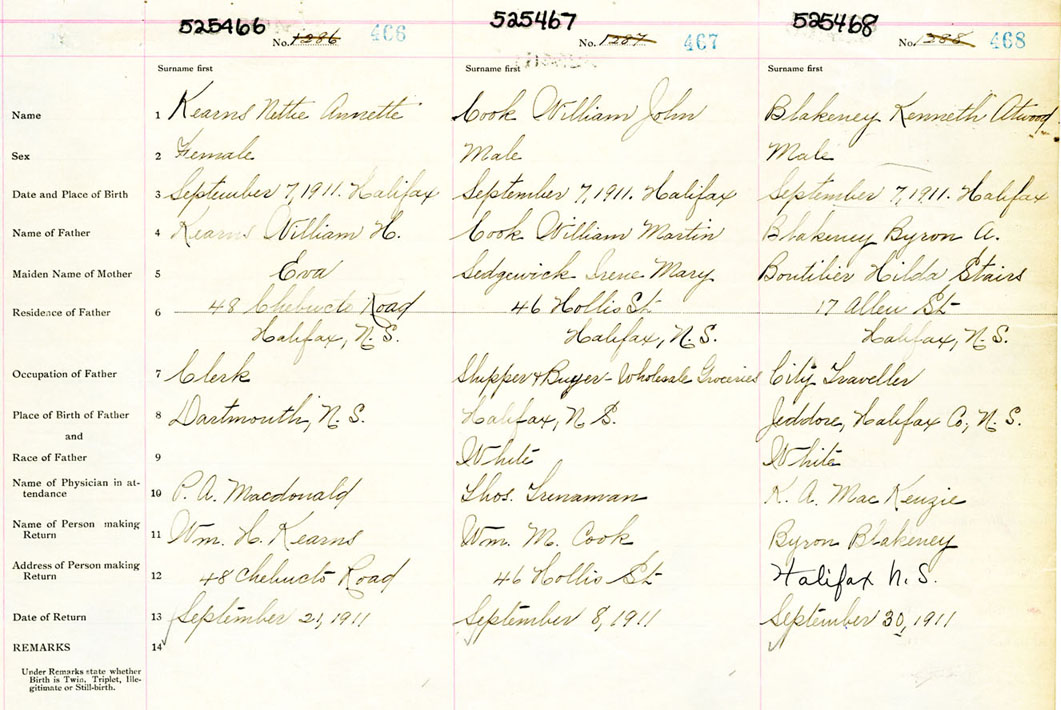 525466 No. 1286 466 525467 No. 1287 467 525468 No. 1288 468
Surname first Surname first Surname first
Name 1 Kearns Nettie Annette Cook William John Blakeney Kenneth Atwood
Sex 2 Female Male Male
Date and Place of Birth 3 September 7, 1911. Halifax September 7, 1911. Halifax September 7, 1911. Halifax
Name of Father 4 Kearns William H. Cook William Martin Blakeney Byron A.
Maiden Name of Mother 5 Eva Sedgewick Irene Mary Boutilier Hilda Stairs
Residence of Father 6 48 Chebucto Road 46 Hollis St 17 Allen St
Halifax, N.S. Halifax, N.S. Halifax, N.S.
Occupation of Father 7 Clerk Shipper & Buyer - Wholesale Groceries City Traveller
Place of Birth of Father 8 Dartmouth, N.S. Halifax, N.S. Jeddore, Halifax Co, N.S.
and
Race of Father 9 White White
Name of Physician in at-
tendance 10 P. A. Macdonald Thos. Trenaman K. A. MacKenzie
Name of Person making
Return 11 Wm. H. Kearns Wm. M. Cook Byron Blakeney
Address of Person making
Return 12 48 Chebucto Road 46 Hollis St Halifax N.S.
Date of Return 13 September 21, 1911 September 8, 1911 September 30, 1911
REMARKS 14
Under Remarks state whether
Birth is Twin, Triplet, Ille-
gitimate or Still-birth.